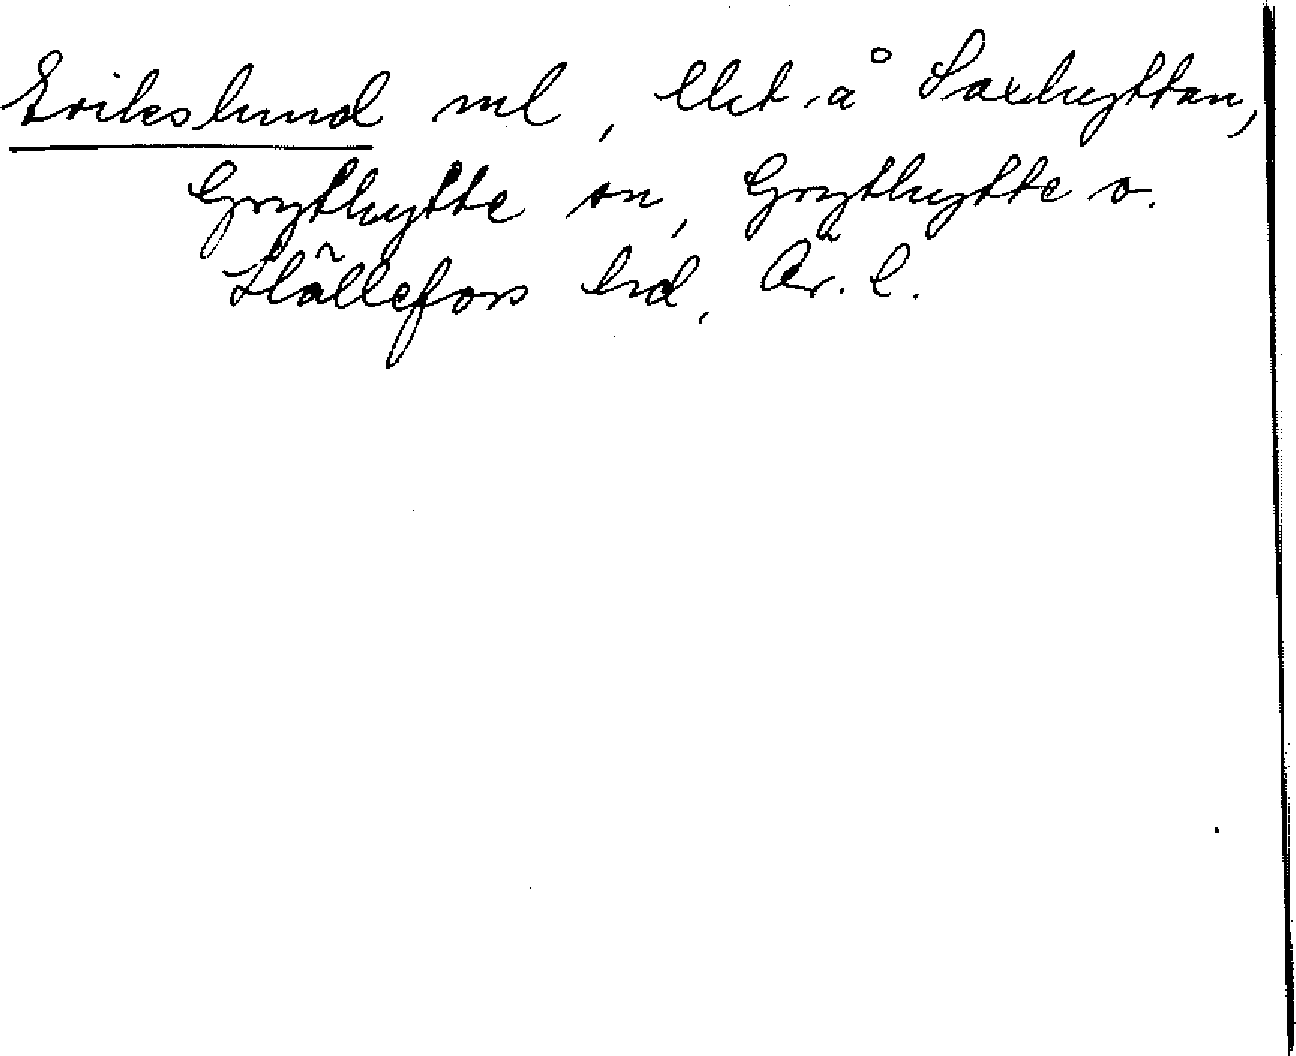 Erikslund ml, lht å Saxhyttan,
Grythytte sn, Grythytte o.
Hällefors hd, Ör. l.